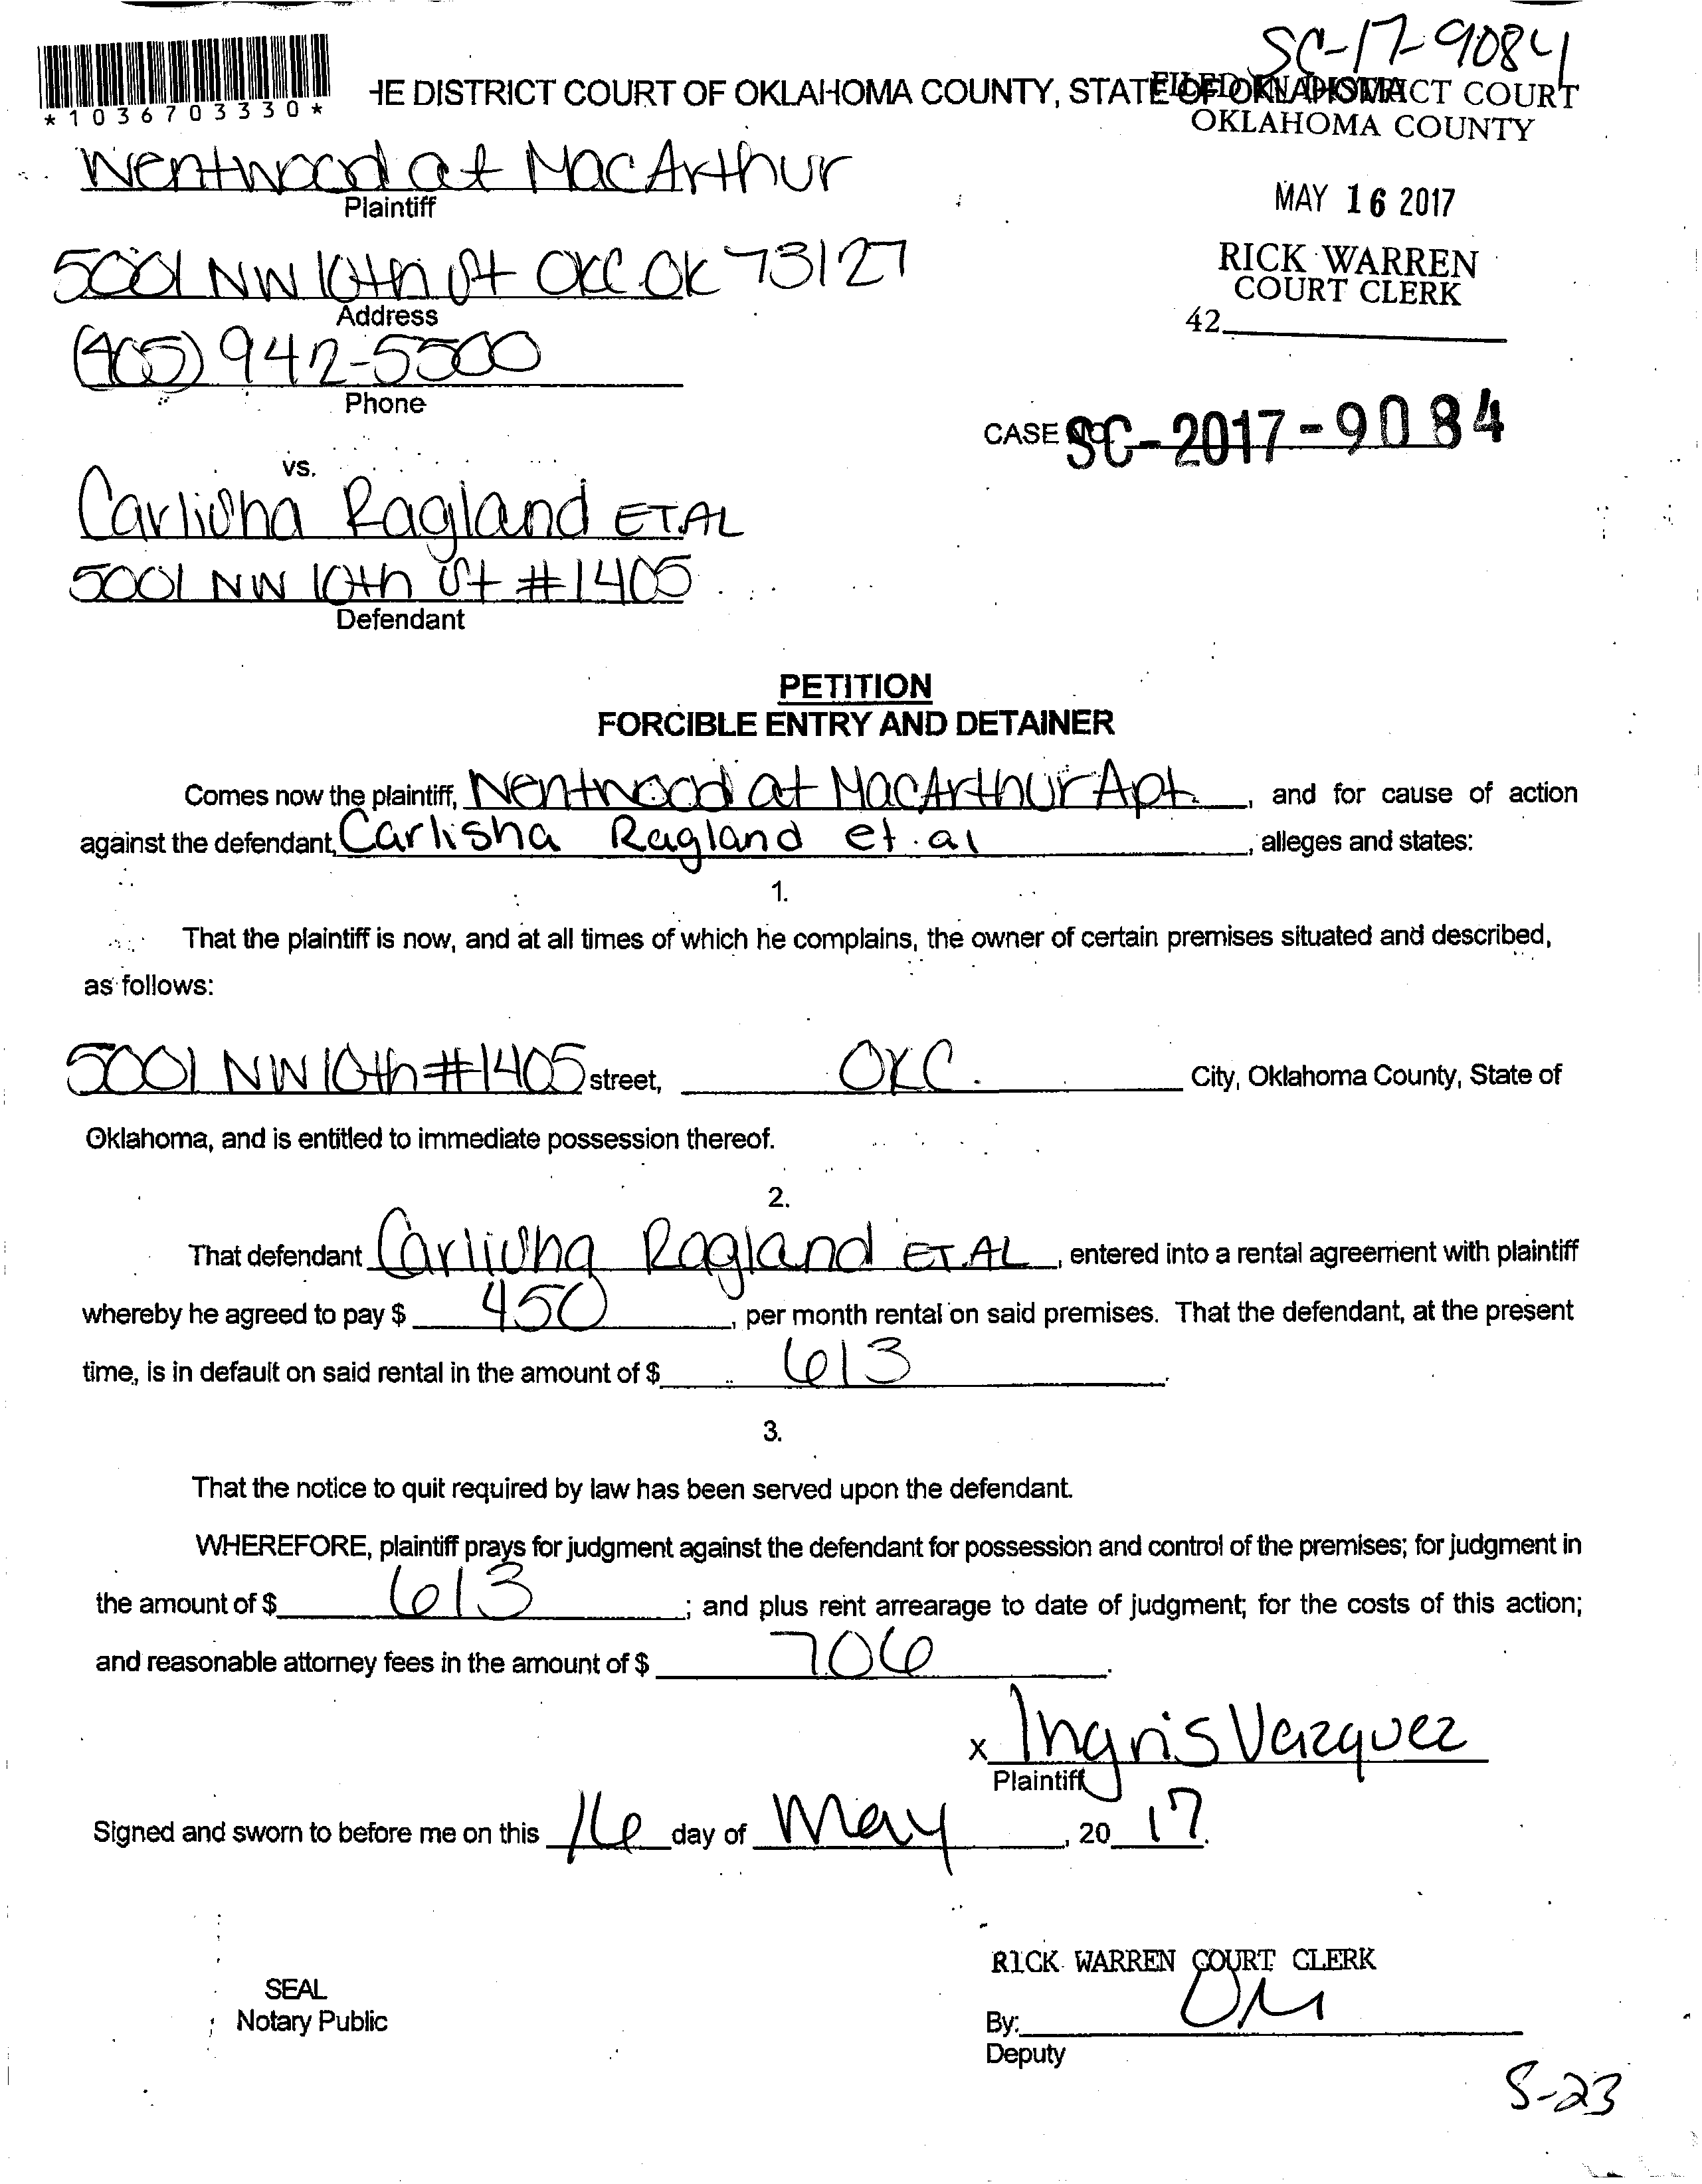 SC-17-9084
*1036703330*
HE DISTRICT COURT OF OKLAHOMA COUNTY, STATE OF OKLAHOMA
FILED IN DISTRICT COURT
OKLAHOMA COUNTY
Wentwood at MacArthur
Plaintiff
MAY 16 2017
5001 NW 10th St OKC OK 73127
Address
RICK WARREN
COURT CLERK
42
(405) 942-5500
Phone
CASE NO. SC-2017-9084
vs.
Carlisha Ragland ET.AL
5001 NW 10th St #1405
Defendant
PETITION
FORCIBLE ENTRY AND DETAINER
Comes now the plaintiff, Wentwood at MacArthur Apt. , and for cause of action
against the defendant, Carlisha Ragland et.al , alleges and states:
1.
That the plaintiff is now, and at all times of which he complains, the owner of certain premises situated and described,
as follows:
5001 NW 10th #1405 street, OKC. City, Oklahoma County, State of
Oklahoma, and is entitled to immediate possession thereof.
2.
That defendant Carlisha Ragland ET.AL , entered into a rental agreement with plaintiff
whereby he agreed to pay $ 450 , per month rental on said premises. That the defendant, at the present
time, is in default on said rental in the amount of $ 613 .
3.
That the notice to quit required by law has been served upon the defendant.
WHEREFORE, plaintiff prays for judgment against the defendant for possession and control of the premises; for judgment in
the amount of $ 613 ; and plus rent arrearage to date of judgment; for the costs of this action;
and reasonable attorney fees in the amount of $ 706 .
x Ingris Vazquez
Plaintiff
Signed and sworn to before me on this 16 day of May , 20 17.
RICK WARREN COURT CLERK
SEAL
Notary Public
By:
Deputy